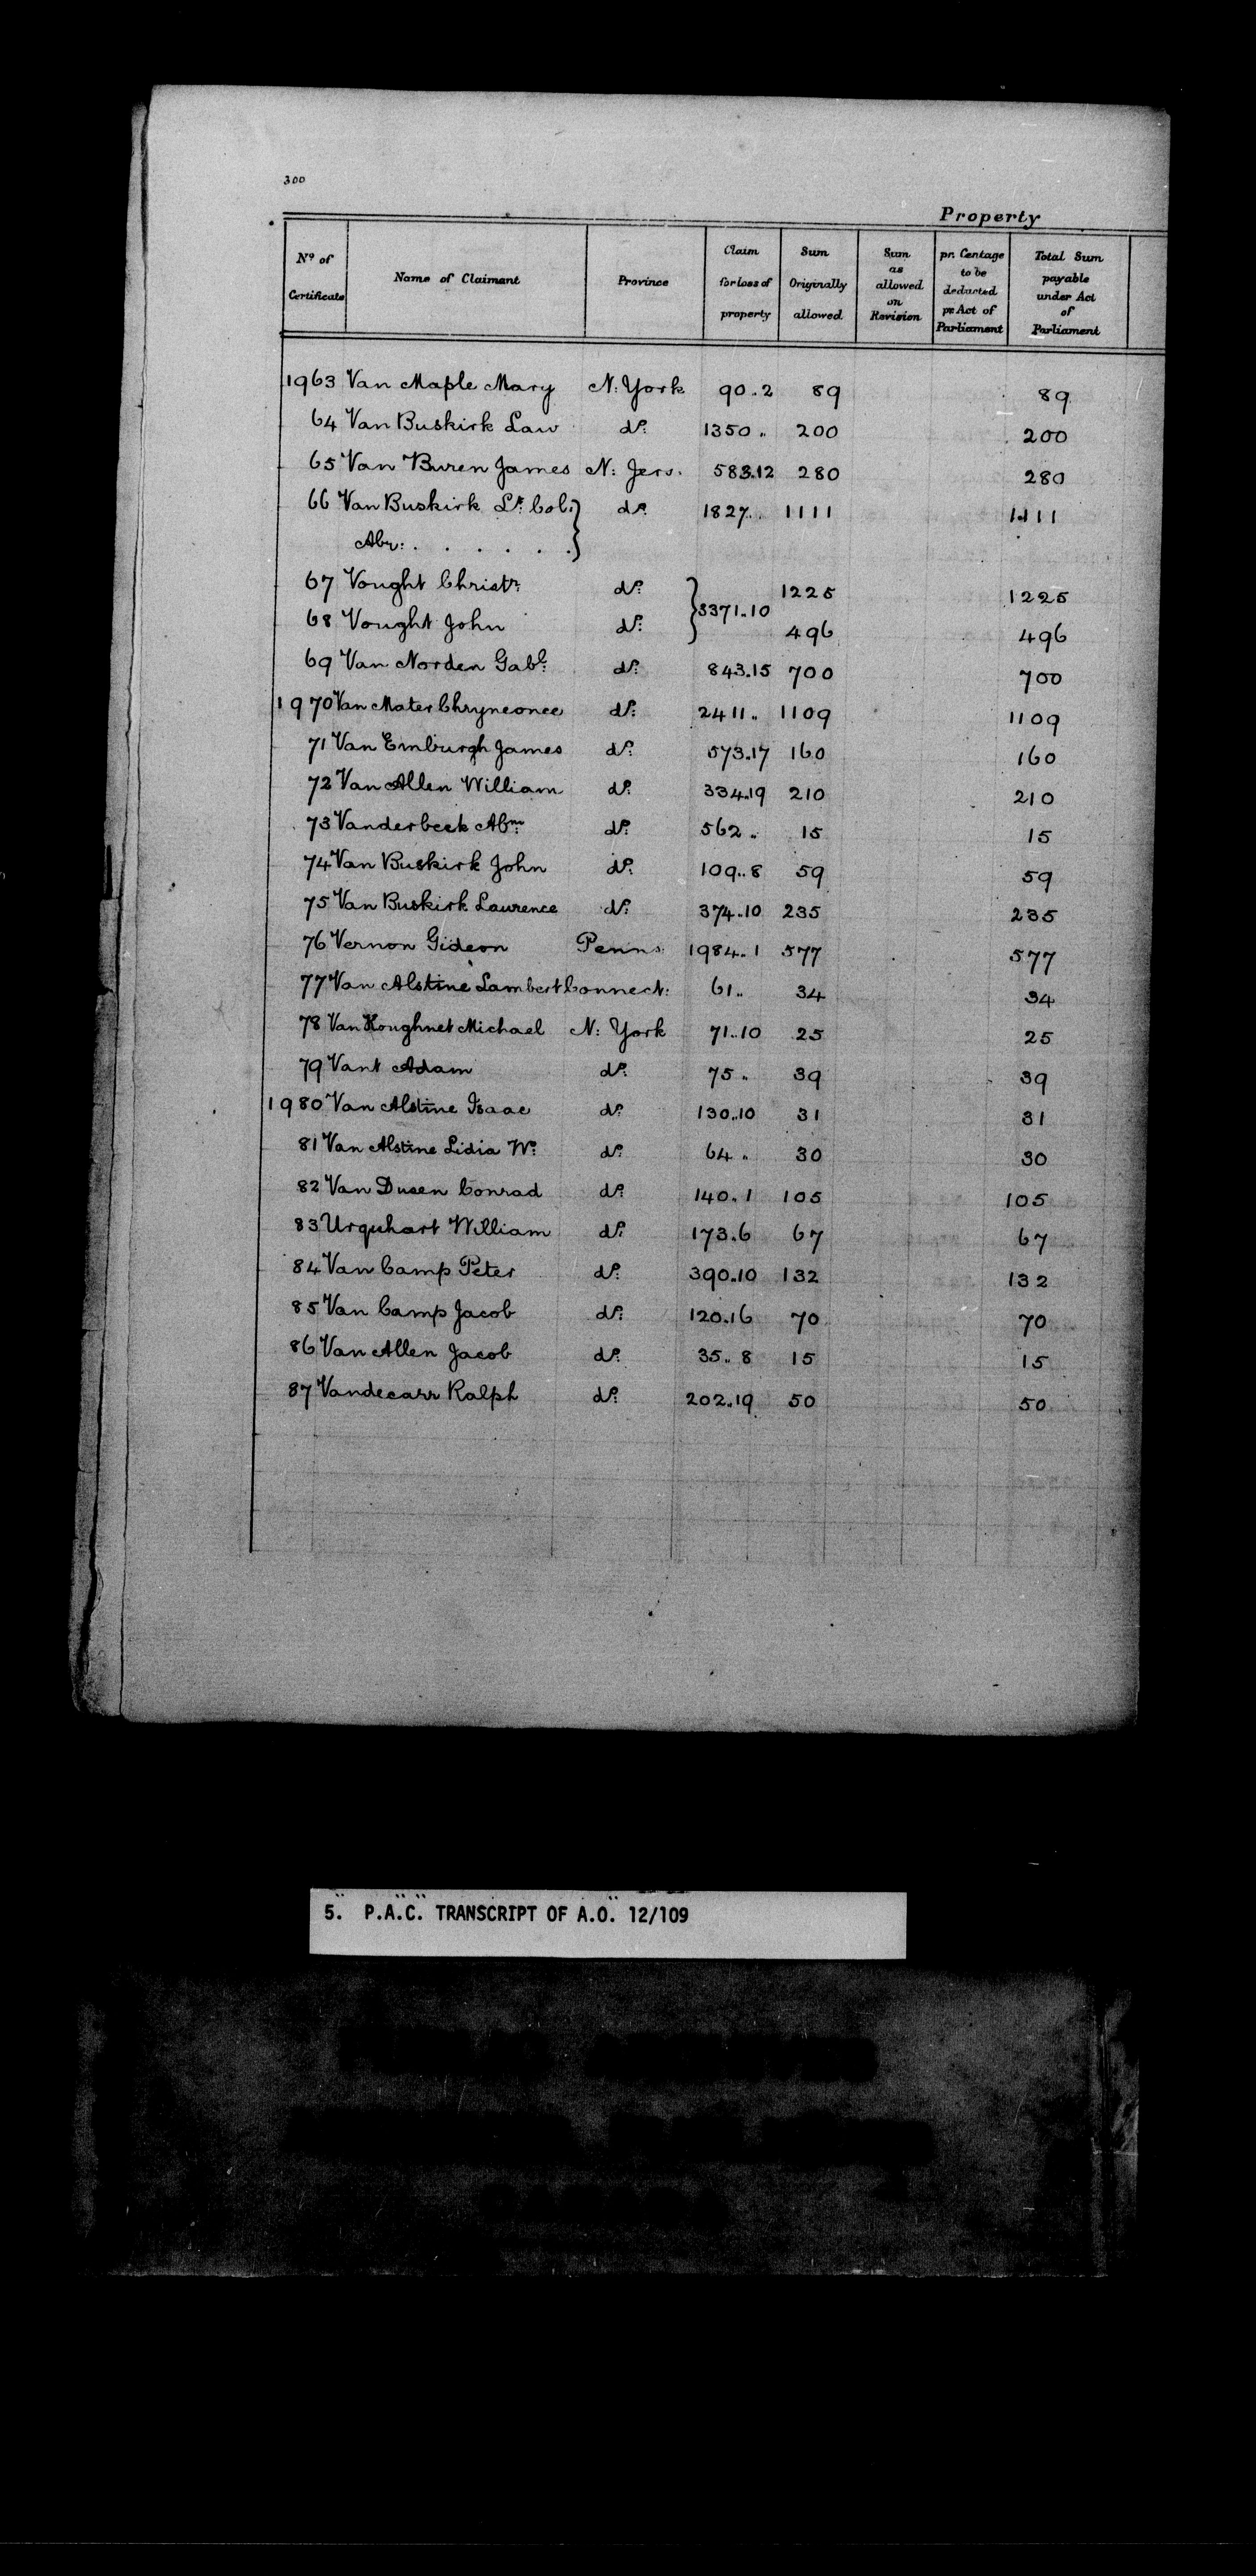 300
Property
Nº of Certificate | Name of Claimant | Province | Claim for loss of property | Sum Originally allowed | Sum as allowed on Revision | pr. Centage to be deducted pr Act of Parliament | Total Sum payable under Act of Parliament
1963 Van Maple Mary N: York 90..2 89 89
64 Van Buskirk Law dº: 1350 .. 200 200
65 Van Buren James N: Jers. 583..12 280 280
66 Van Buskirk Lt: Col:} dº: 1827.. 1111 1111
Abr: . . . . . .}
67 Vought Christr: dº: } 3371..10 1225 1225
68 Vought John dº: } 496 496
69 Van Norden Gabl: dº: 843.15 700 700
1970 Van Mater Chryneonce dº: 2411.. 1109 1109
71 Van Emburgh James dº: 573.17 160 160
72 Van Allen William dº: 334.19 210 210
73 Vanderbeek Abm: dº: 562 .. 15 15
74 Van Buskirk John dº: 109..8 59 59
75 Van Buskirk Laurence dº: 374..10 235 235
76 Vernon Gideon Penns: 1984..1 577 577
77 Van Alstine Lambert Connect: 61.. 34 34
78 Van Koughnet Michael N: York 71..10 25 25
79 Vant Adam dº: 75 .. 39 39
1980 Van Alstine Isaac dº: 130..10 31 31
81 Van Alstine Lidia Wº: dº: 64 .. 30 30
82 Van Dusen Conrad dº: 140..1 105 105
83 Urquhart William dº: 173..6 67 67
84 Van Camp Peter dº: 390..10 132 132
85 Van Camp Jacob dº: 120..16 70 70
86 Van Allen Jacob dº: 35..8 15 15
87 Vandecarr Ralph dº: 202..19 50 50
5. P.A.C. TRANSCRIPT OF A.O. 12/109